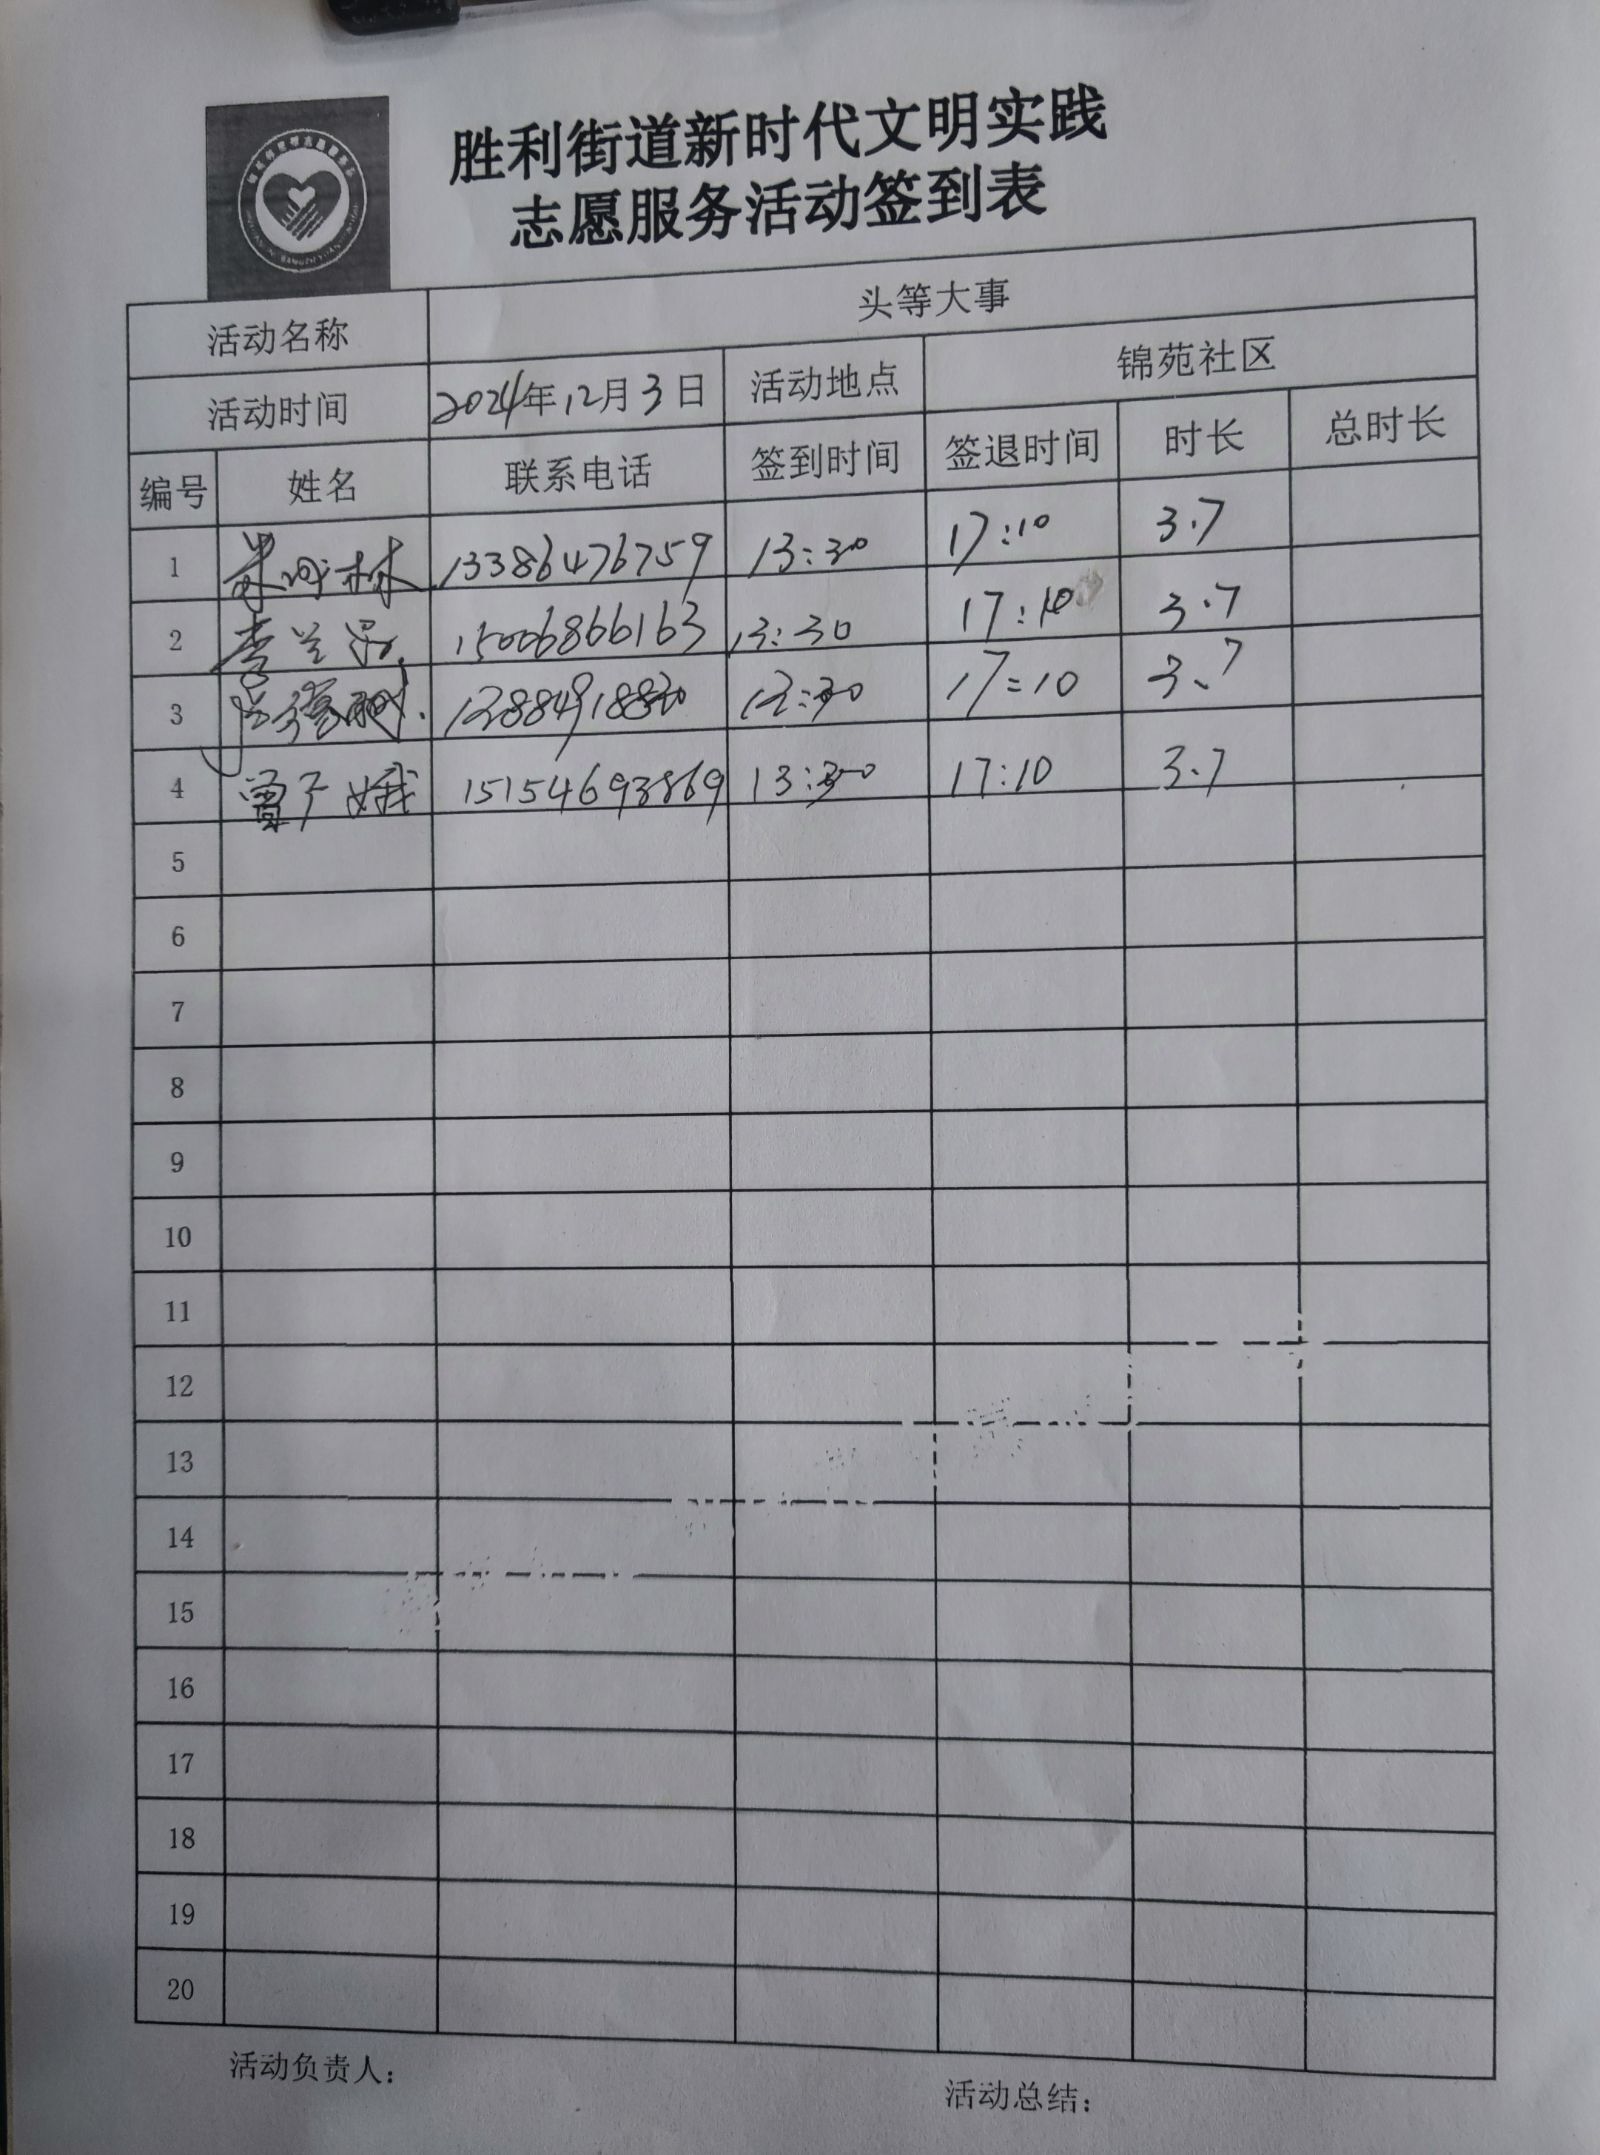 胜利街道新时代文明实践
志愿服务活动签到表
活动名称 头等大事
活动时间 2024年12月3日 活动地点 锦苑社区
编号 姓名 联系电话 签到时间 签退时间 时长 总时长
1 13386476759 13:30 17:10 3.7
2 李兰 15006866163 13:30 17:10 3.7
3 17:10 3.7
4 15154693869 13:30 17:10 3.7
5
6
7
8
9
10
11
12
13
14
15
16
17
18
19
20
活动负责人: 活动总结: